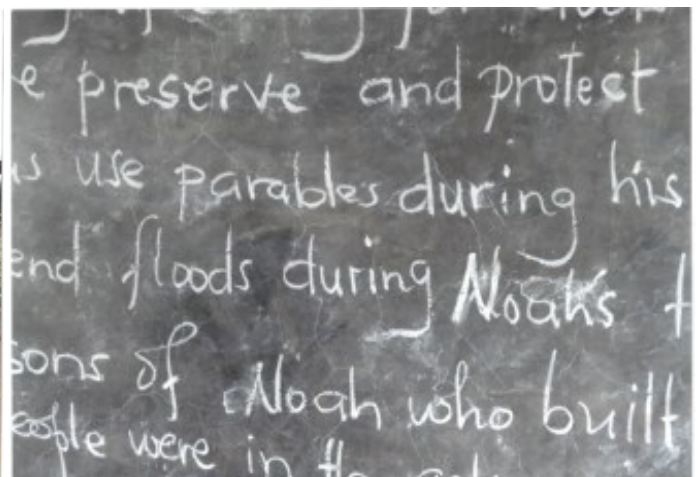 e preserve and protect
us use parables during his
end floods during Noah's t
sons of Noah who built
eople were in the